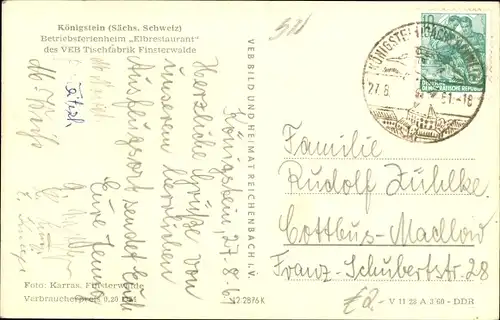 Königstein (Sächs. Schweiz)
Betriebsferienheim „Elbrestaurant"
des VEB Tischfabrik Finsterwalde
Königstein, 27.8.61
Herzliche Grüße von
unserem herrlichen
Ausflugsort sendet Euch
Eure
Foto: Karras, Finsterwalde
Verbraucherpreis 0,20 DM
VEB BILD UND HEIMAT REICHENBACH i. V.
12 2876 K
10
DEMOKRATISCHE REPUBLIK
KÖNIGSTEIN
27.8. 61.-18
Familie
Rudolf Zühlke
Cottbus-Madlow
Franz-Schubertstr. 28
V 11 28 A 3/60 - DDR